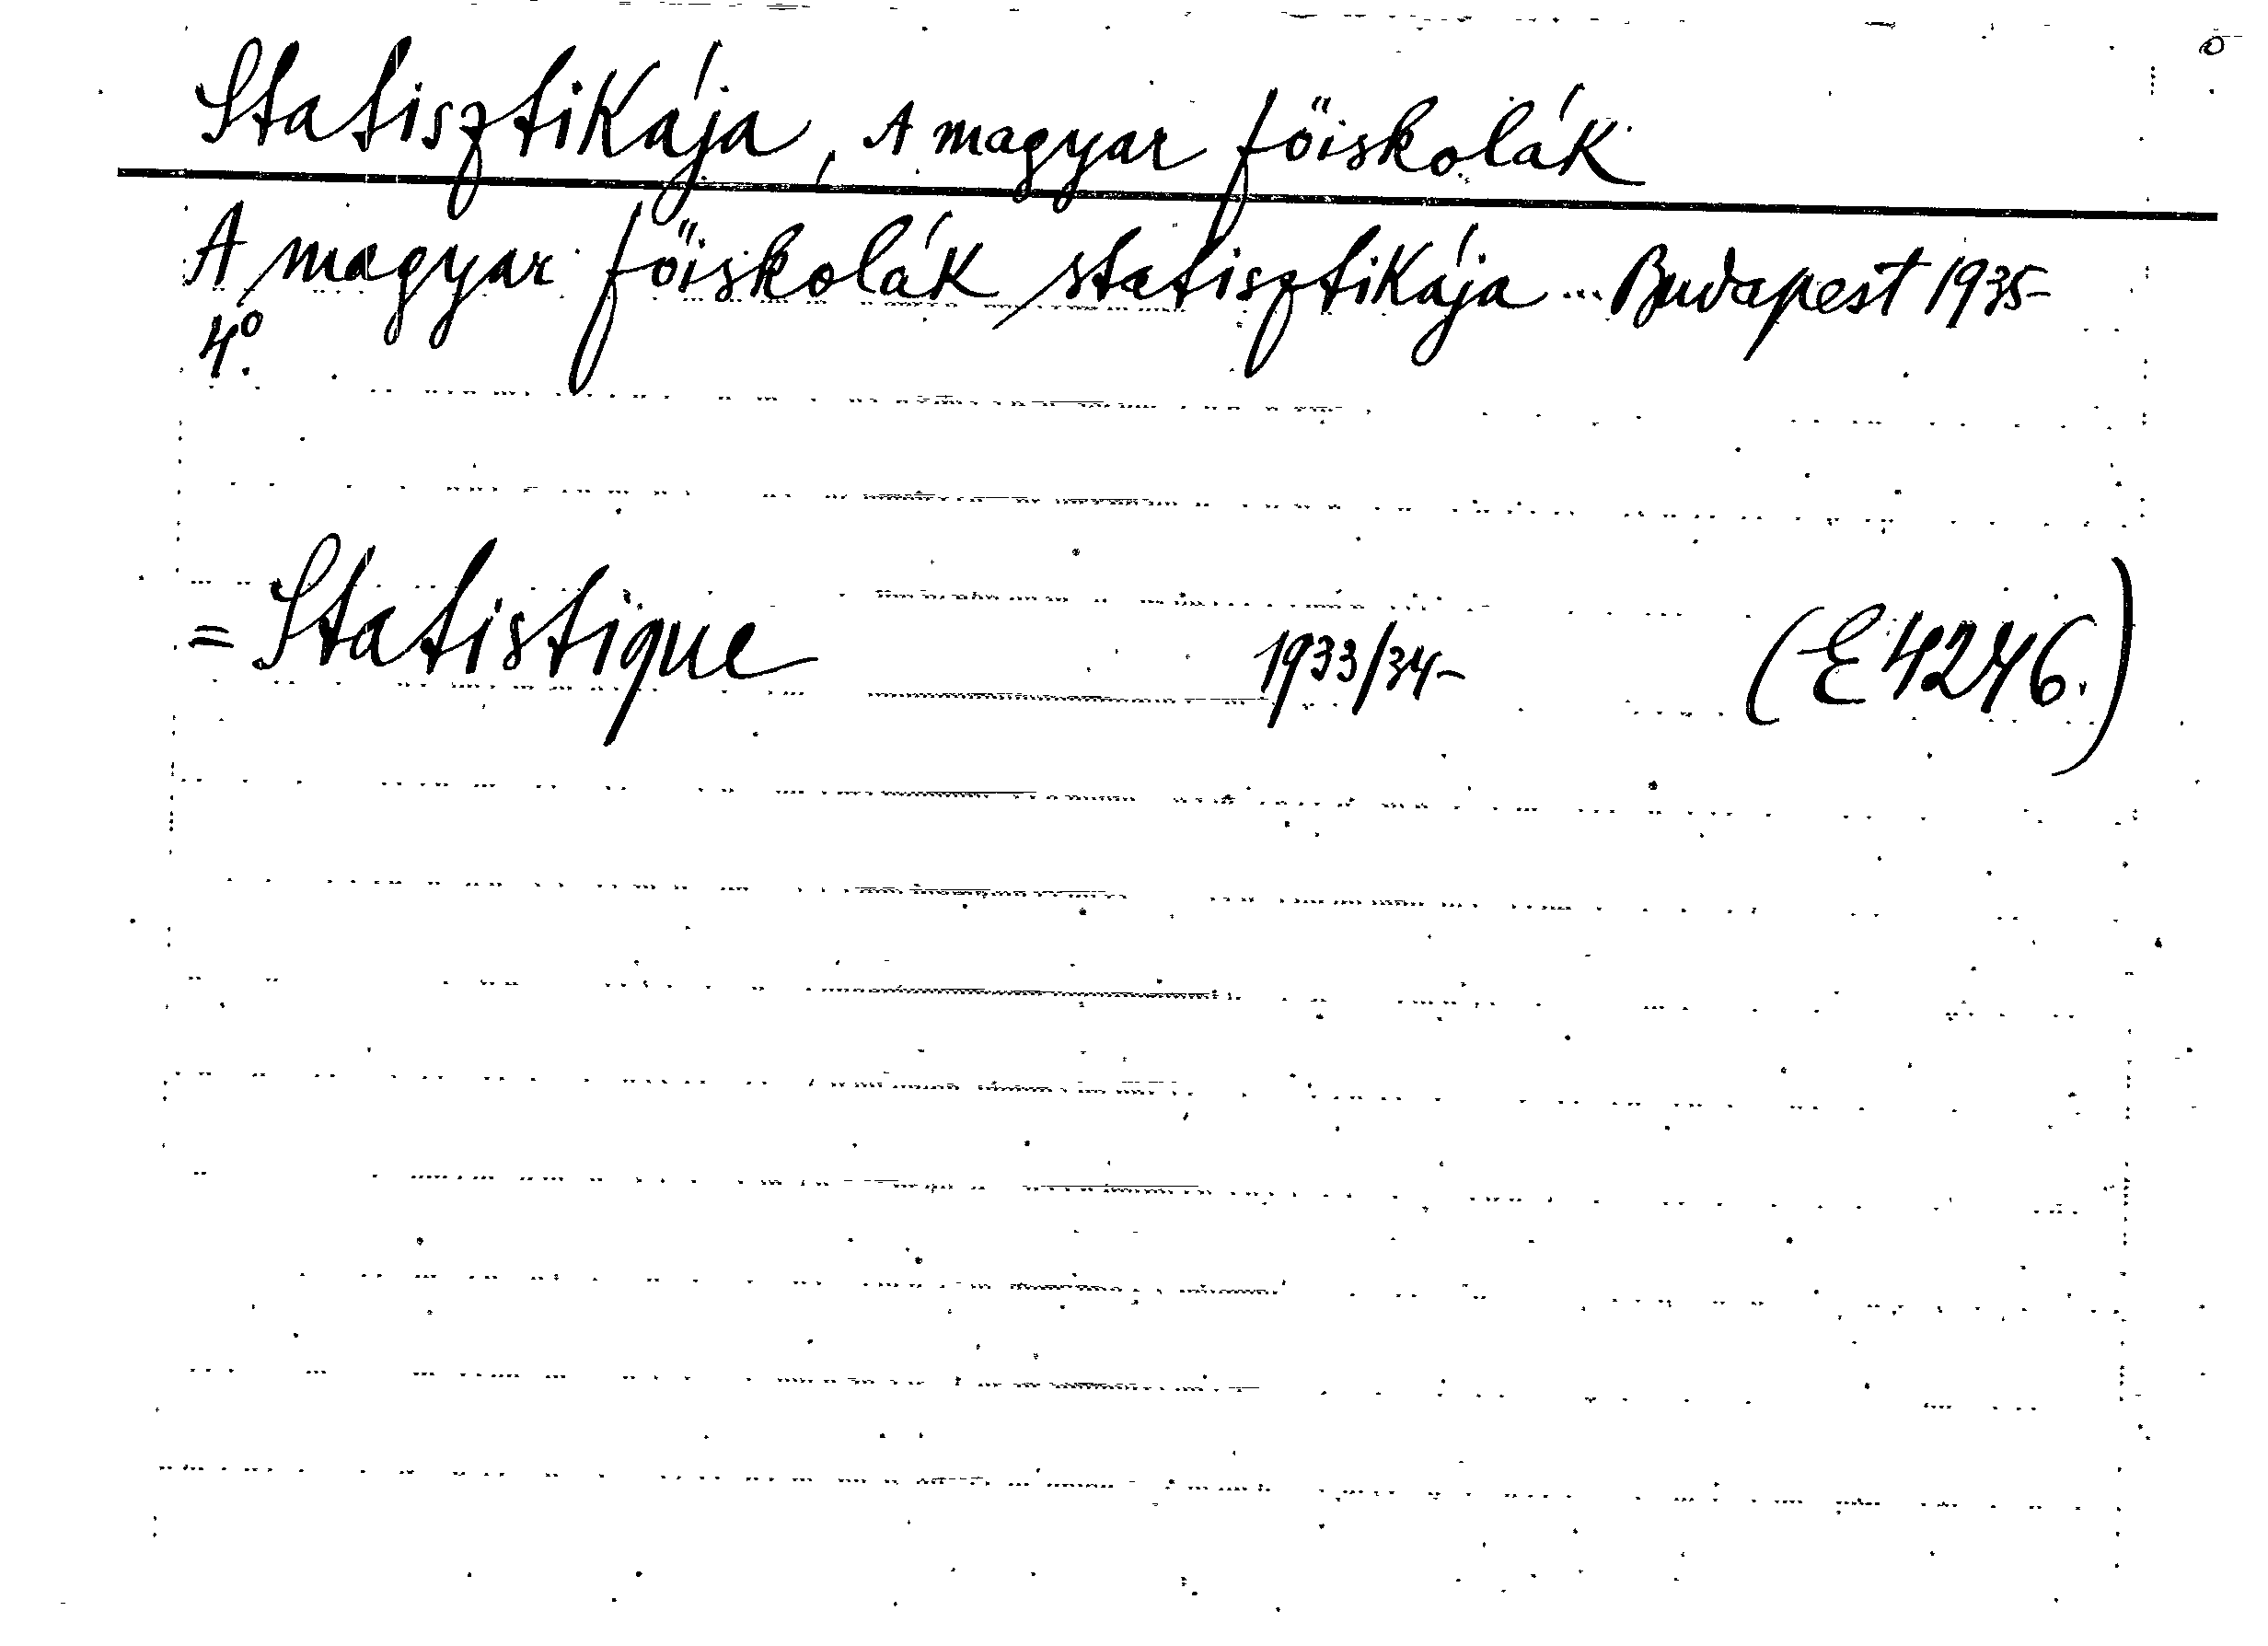 Statisztikája, A magyar főiskolák
A magyar főiskolák statisztikája ... Budapest 1935-
4°.
= Statistique 1933/34- (E 4246.)